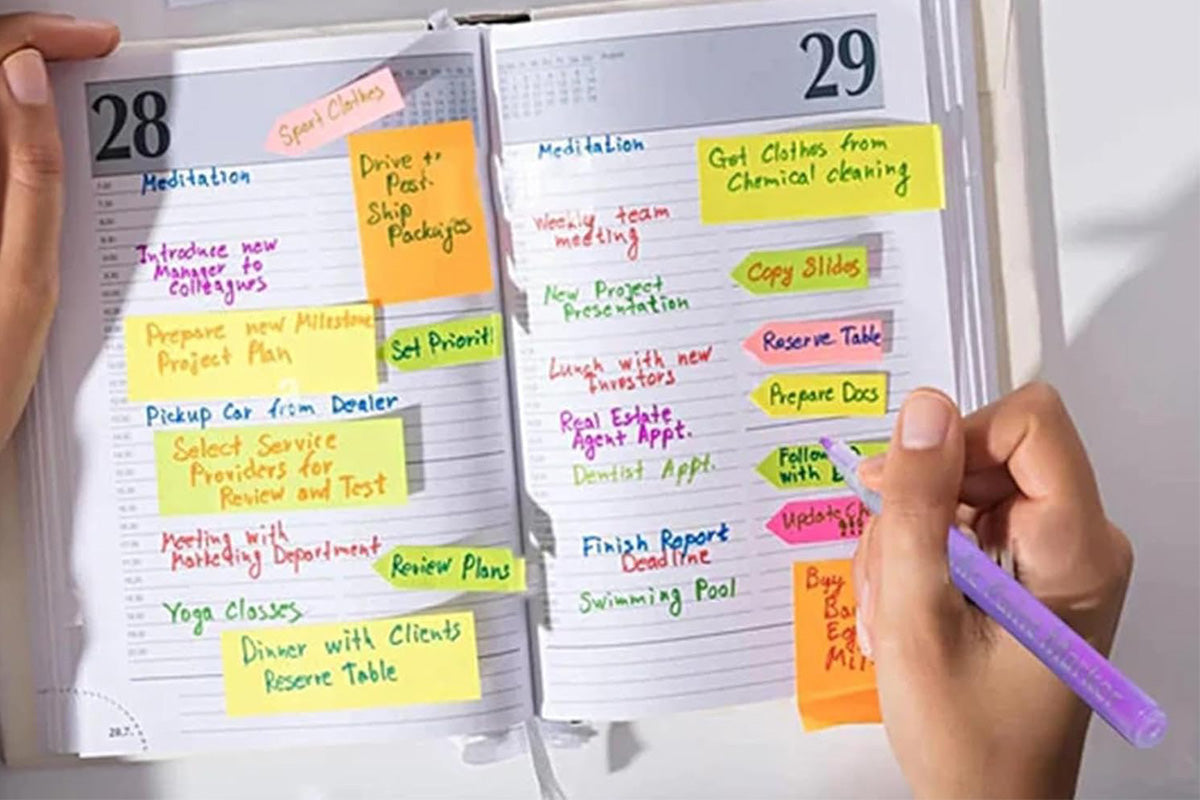 28
Sport Clothes
Meditation
Drive to
Post.
Ship
Packages
Introduce new
Manager to
colleagues
Prepare new Milestone
Project Plan
Set Priorit!
Pickup Car from Dealer
Select Service
Providers for
Review and Test
Meeting with
Marketing Department
Review Plans
Yoga Classes
Dinner with Clients
Reserve Table
28.7.
29
Meditation
Get Clothes from
Chemical cleaning
Weekly team
meeting
Copy Slides
New Project
Presentation
Reserve Table
Lunch with new
Investors
Prepare Docs
Real Estate
Agent Appt.
Dentist Appt.
Follow
with
Update
Finish Report
Deadline
Swimming Pool
Buy
Ba
Eg
Mil